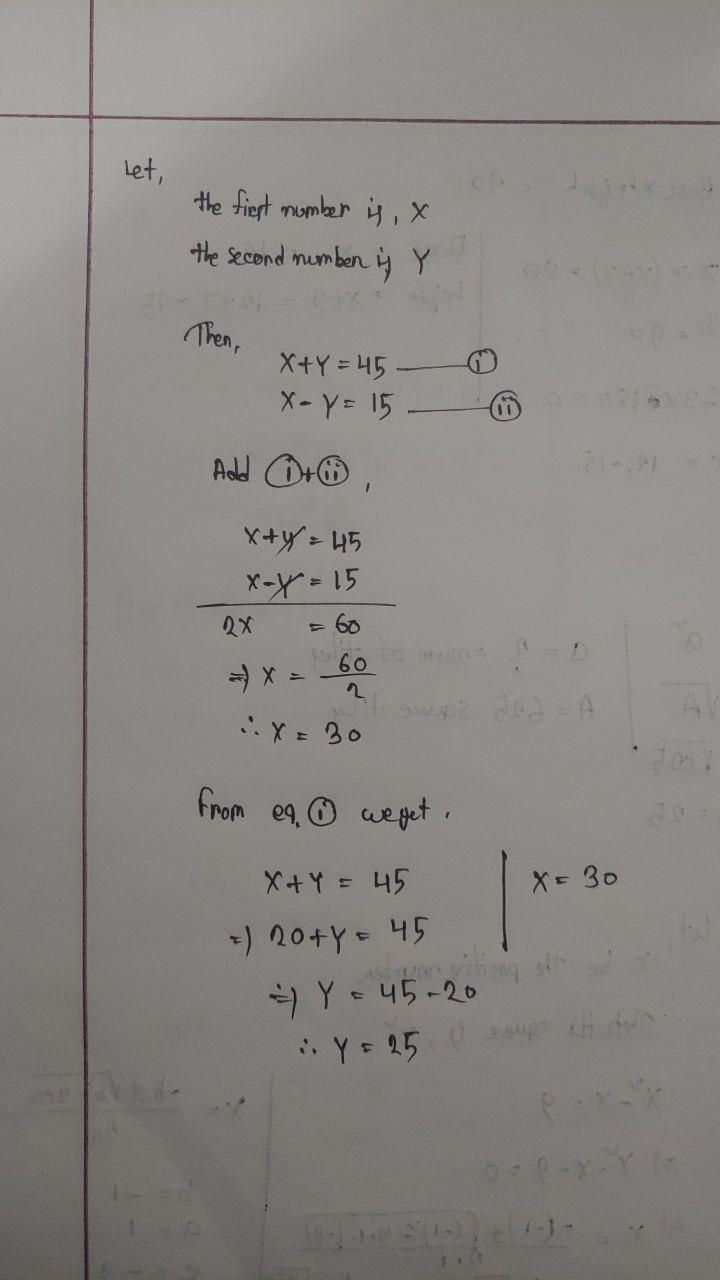 Let,
the first number is, X
the second number is Y
Then,
X+Y = 45 —— (i)
X- Y = 15 —— (ii)
Add (i)+(ii),
X+Y = 45
X-Y = 15
2X = 60
=) X = 60/2
∴ X = 30
From eq. (i) we get.
X+Y = 45 | X = 30
=) 20+Y = 45
=) Y = 45-20
∴ Y = 25